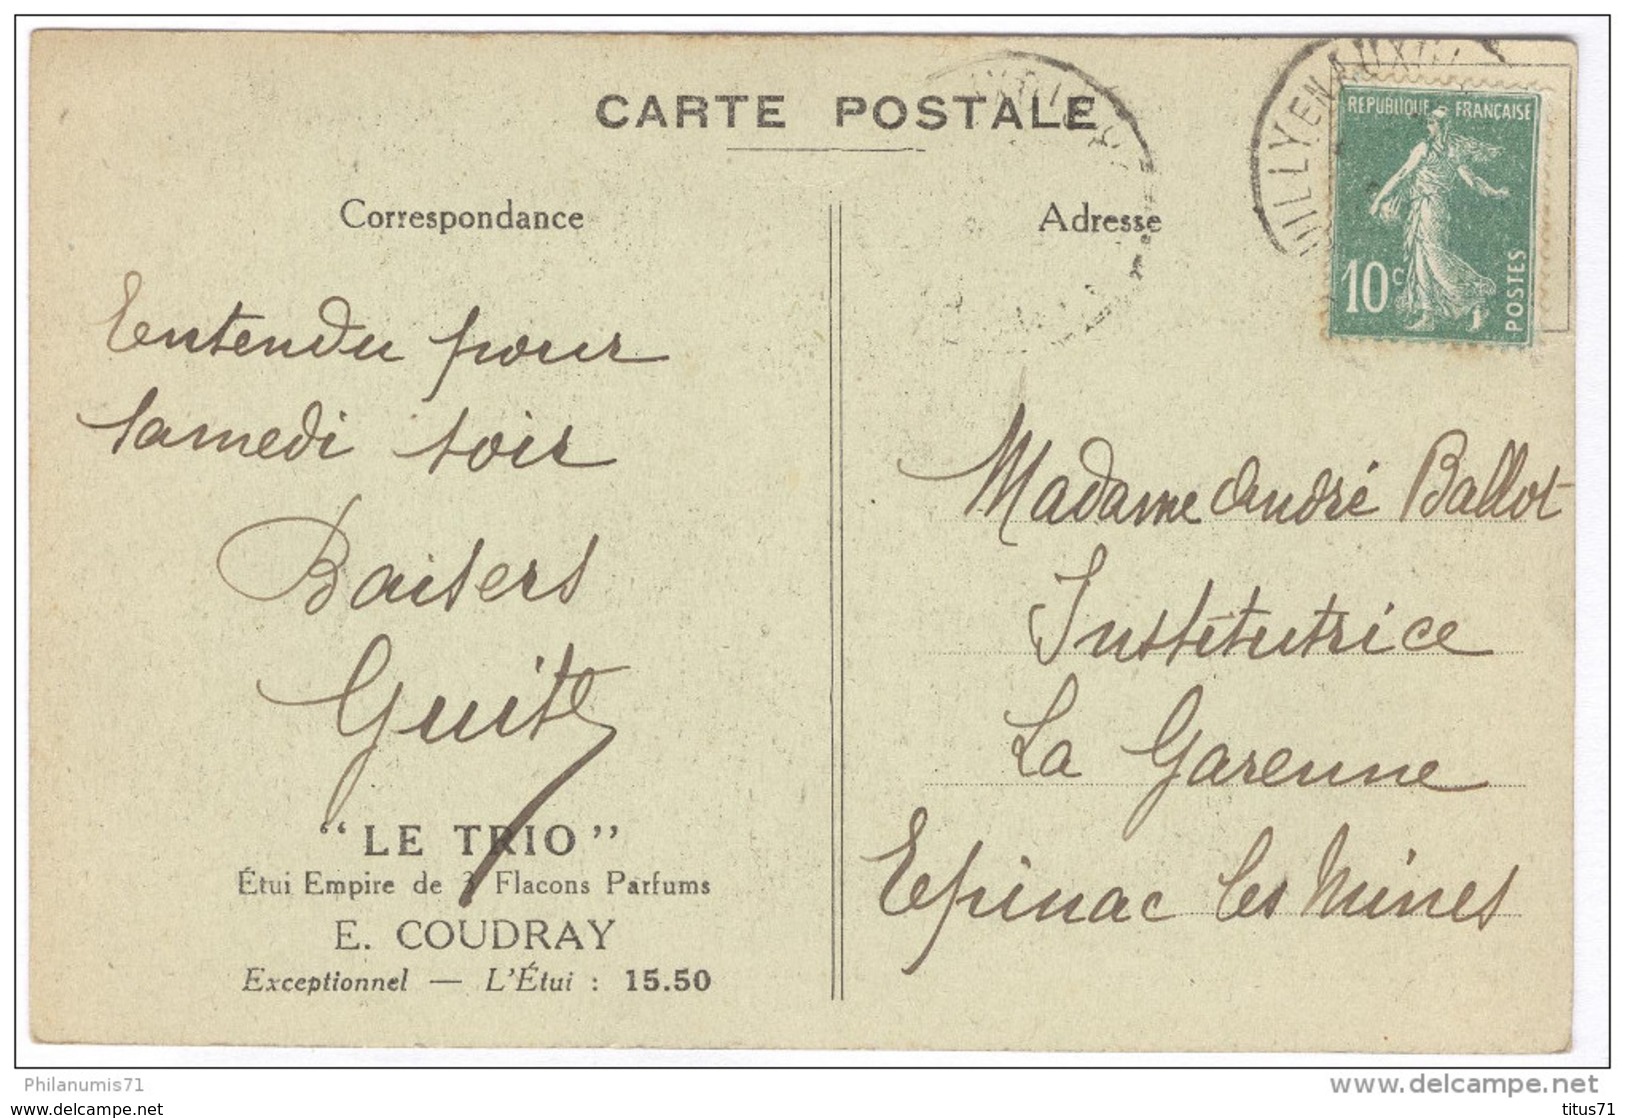 CARTE POSTALE
Correspondance
Entendu pour
samedi soir
Baisers
Guite
"LE TRIO"
Étui Empire de 3 Flacons Parfums
E. COUDRAY
Exceptionnel — L'Étui : 15.50
Adresse
REPUBLIQUE FRANÇAISE
10c
POSTES
Madame André Ballot
Institutrice
La Garenne
Epinac les Mines
Philanumis71
www.delcampe.net
www.delcampe.com
titus71